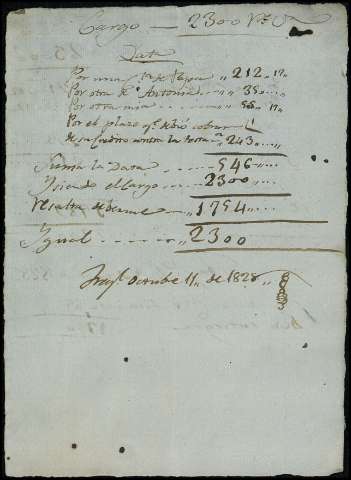 Cargo — 2300 Rs
Data
Por una ... de ... " 212 "
Por otra de Antonio " 35 "
Por otra mia " 56 "
Por el plazo qe. debió cobrar
de su ... contra la ... " 243 "
Suma la Data " 546 "
Y siendo el Cargo 2300
Resulta ... 1754
Ygual " 2300
Octubre 11 de 1828